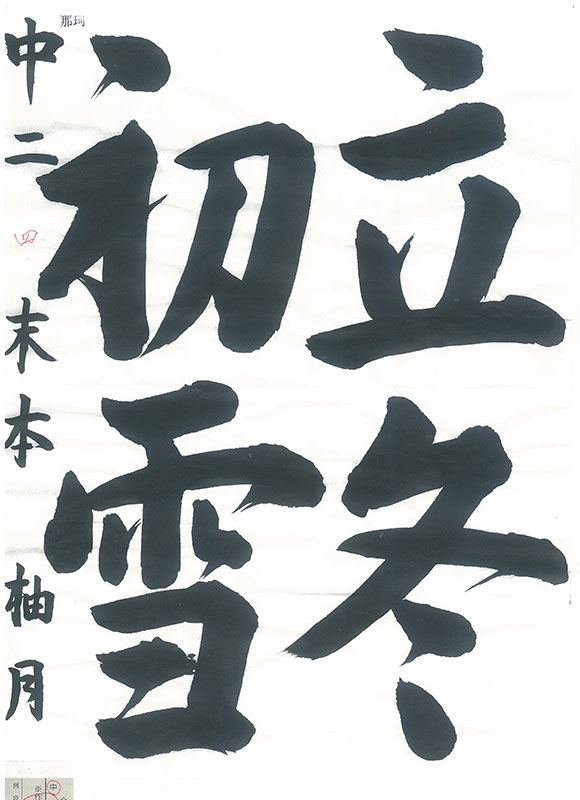 立冬
初雪
中二 四 末本 柚月
那珂
中